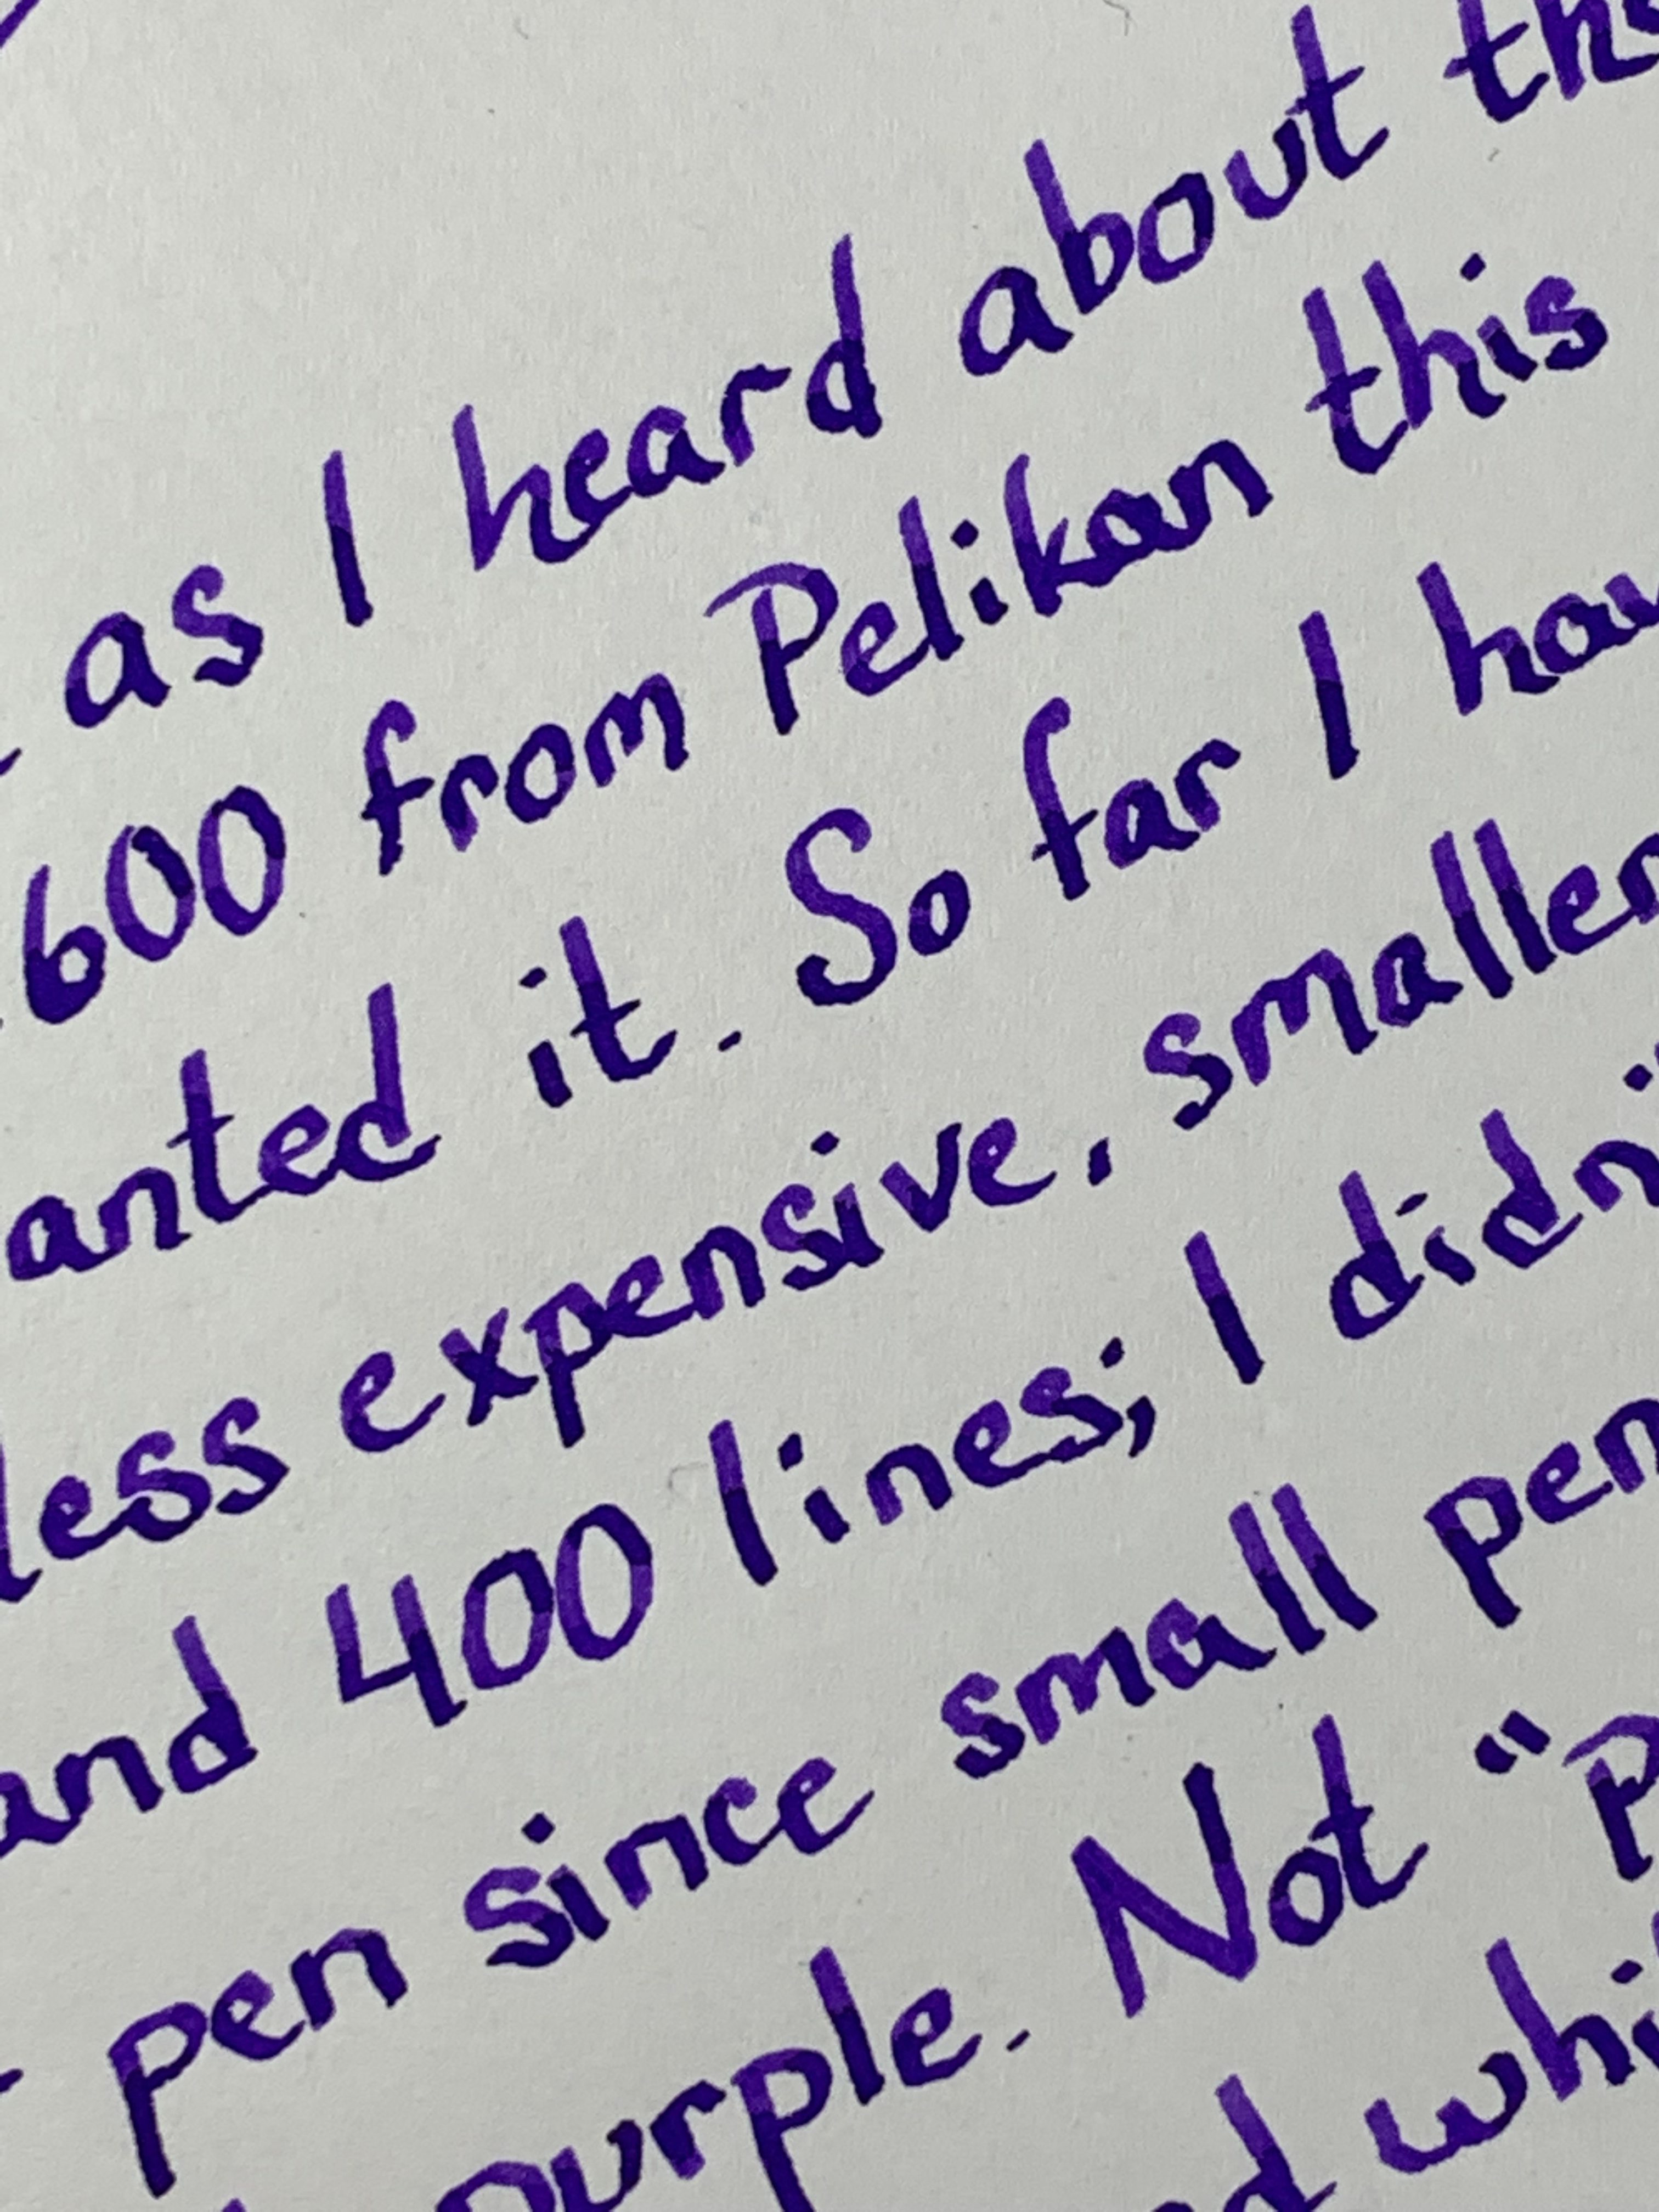 as I heard about
600 from Pelikan this
it. So far I
less expensive, smaller
and 400 lines; I
pen since small pen
purple. Not